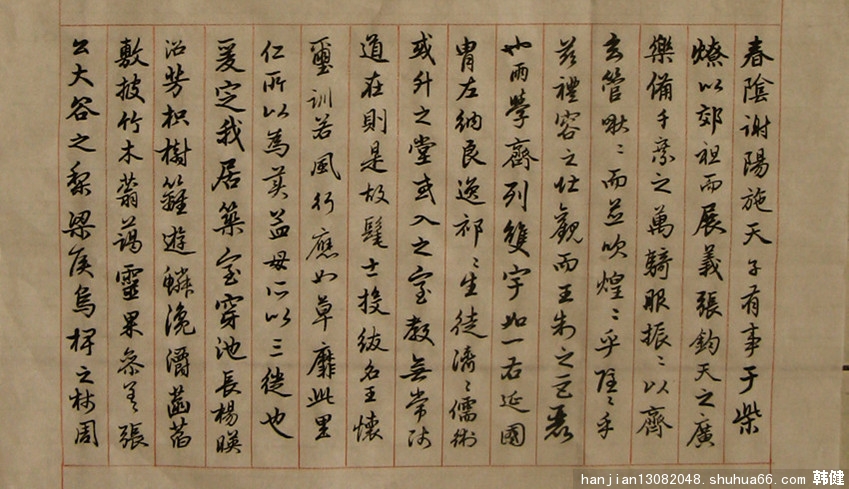 春陰謝陽施天子有事于柴
燎以郊祖而展義張鈞天之廣
樂備千乘之萬騎服振〻以齊
玄管啾〻而並吹煌〻乎隱〻乎
茲禮容之壯觀而王制之巨麗
也兩學齊列雙宇如一右延國
冑左納良逸祁〻生徒濟〻儒術
或升之堂或入之室教無常師
道在則是故髦士投紱名王懷
璽訓若風行應如草靡此里
仁所以為美孟母所以三徙也
爰定我居築室穿池長楊暎
沼芳枳樹籬遊鱗瀺灂菡萏
敷披竹木蓊藹靈果參差張
公大谷之梨梁侯烏椑之柿周
hanjian13082048.shuhua66.com 韩健